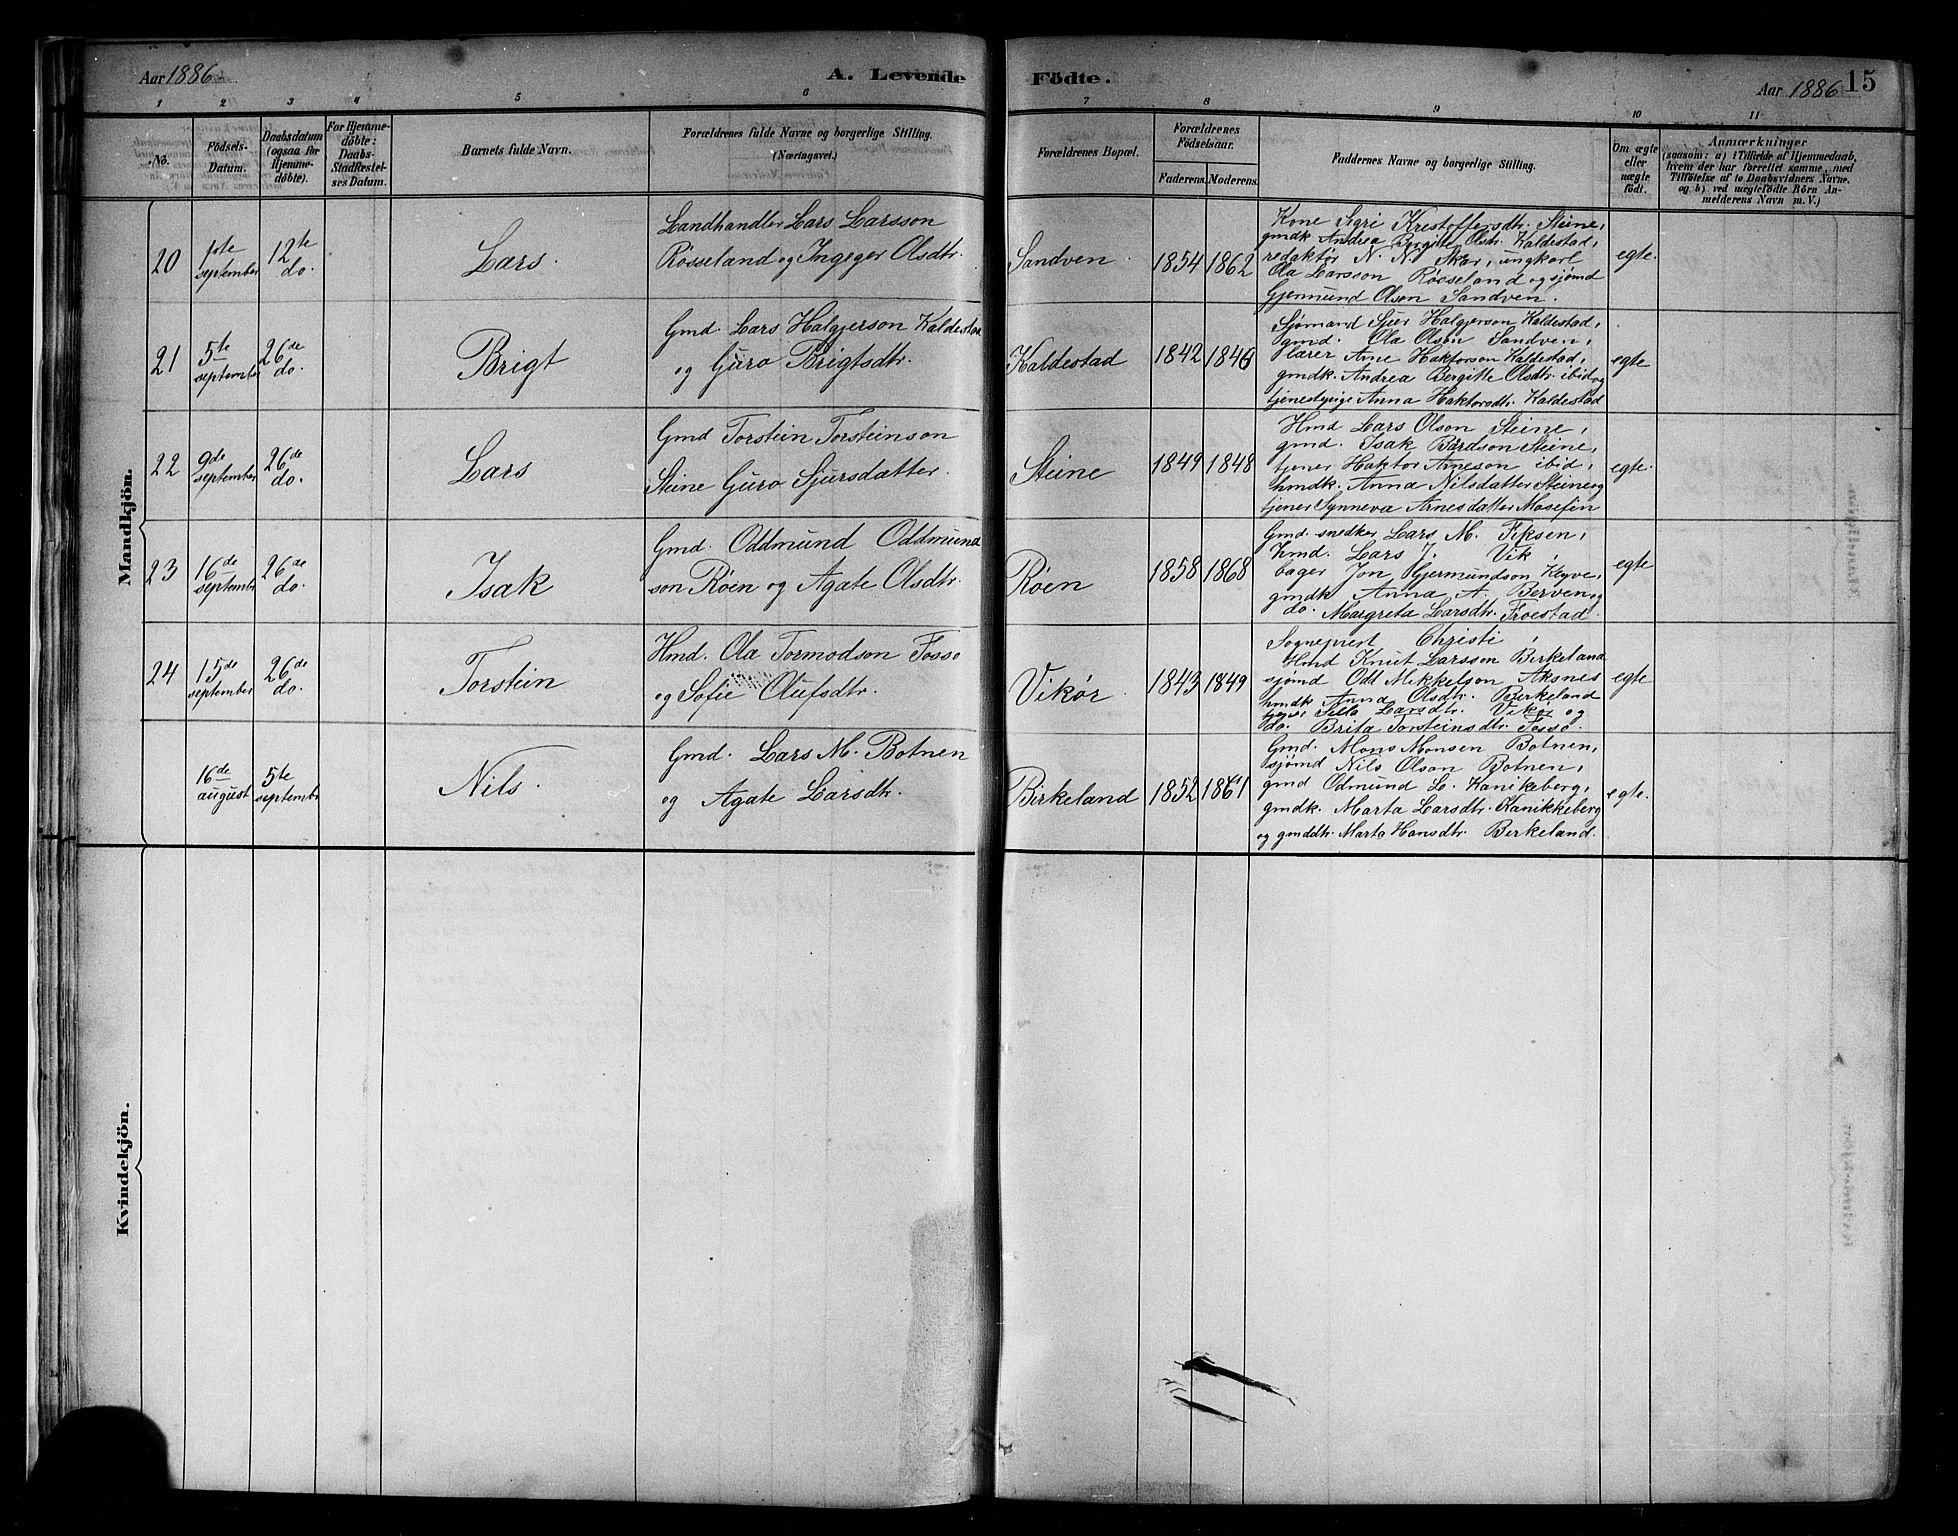 Aar 1886.
A. Levende Fødte.
Aar 1886 15
1 2 3 4 5 6 7 8 9 10 11
No.
Fødsels-
Datum.
Daabsdatum
(ogsaa for
Hjemme-
døbte).
For Hjemme-
døbte:
Daabs-
Stadfestel-
ses Datum.
Barnets fulde Navn.
Forældrenes fulde Navne og borgerlige Stilling.
(Næringsvei.)
Forældrenes Bopæl.
Forældrenes
Fødselsaar.
Faderens. Moderens.
Faddernes Navne og borgerlige Stilling.
Om ægte
eller
uægte
født.
Anmærkninger
(saasom: a) i Tilfælde af Hjemmedaab,
hvem der har forrettet samme, med
Tilføielse af to Daabsvidners Navne.
og b) ved uægtefødte Børn An-
melderens Navn m. V.)
Mandkjön.
20
1ste
september
12te
do.
Lars.
Landhandler Lars Larsson
Røsseland og Ingeger Olsdtr.
Sandven.
1854
1862
Kone Sigri Krestoffersdtr. Steine,
gmdk Andrea Bergitte Olsdtr. Kaldestad,
redaktør N. N. Skår, ungkarl
Ola Larsson Røsseland og sjømd
Gjermund Olson Sandven.
egte.
21
5te
september
26de
do.
Brigt
Gmd. Lars Halgjerson Kaldestad
og Guro Brigtsdtr.
Kaldestad
1842
1846
Sjømand Sjur Halgjerson Kaldestad,
gmd. Ola Olson Sandven,
lærer Arne Haktorson Kaldestad,
gmdk. Andrea Bergitte Olsdtr. ibid og
tjenestpige Anna Haktorsdtr. Kaldestad
egte
22
9de
september
26de
do.
Lars
Gmd Torstein Torsteinson
Steine Guro Sjursdatter.
Steine
1849
1848
Hmd Lars Olson Steine,
gmd. Isak Bårdson Steine,
tjener Haktor Arneson ibid,
hmdk. Anna Nilsdatter Steine og
tjener Synneva Arnesdatter Mosefin
egte.
23
16de
september
26de
do.
Isak
Gmd. Oddmund Oddmund
son Røen og Agate Olsdtr.
Røen
1858
1868
Gmd. snedker Lars M. Fiksen,
Hmd. Lars J. Vik,
bager Jon Gjermundson Keyve,
gmdk Anna A. Berven og
do. Margreta Larsdtr. Froestad.
egte
24
15de
september
26de
do.
Torstein
Hmd. Ola Tormodson Fosso
og Sofie Olufsdtr.
Vikør.
1843
1849
Sogneprest Christi
Hmd Knut Larsson Birkeland
sjømd Odd Mikkelson Aksnes
hmdk Anna Olsdtr. Birkeland
tjener Larsdtr. Vikør og
do. Brita Torsteinsdtr. Fosso.
egte
16de
august
5te
septembr
Nils.
Gmd. Lars M. Botnen
og Agate Larsdtr.
Birkeland
1852
1861
Gmd. Mons Monsen Botnen,
sjømd Nils Olson Botnen,
gmd Odmund L. Kanikeberg,
gmdk. Marta Larsdtr. Kanikkeberg
og gmddtr. Marta Hansdtr. Birkeland.
egte.
Kvindekjön.